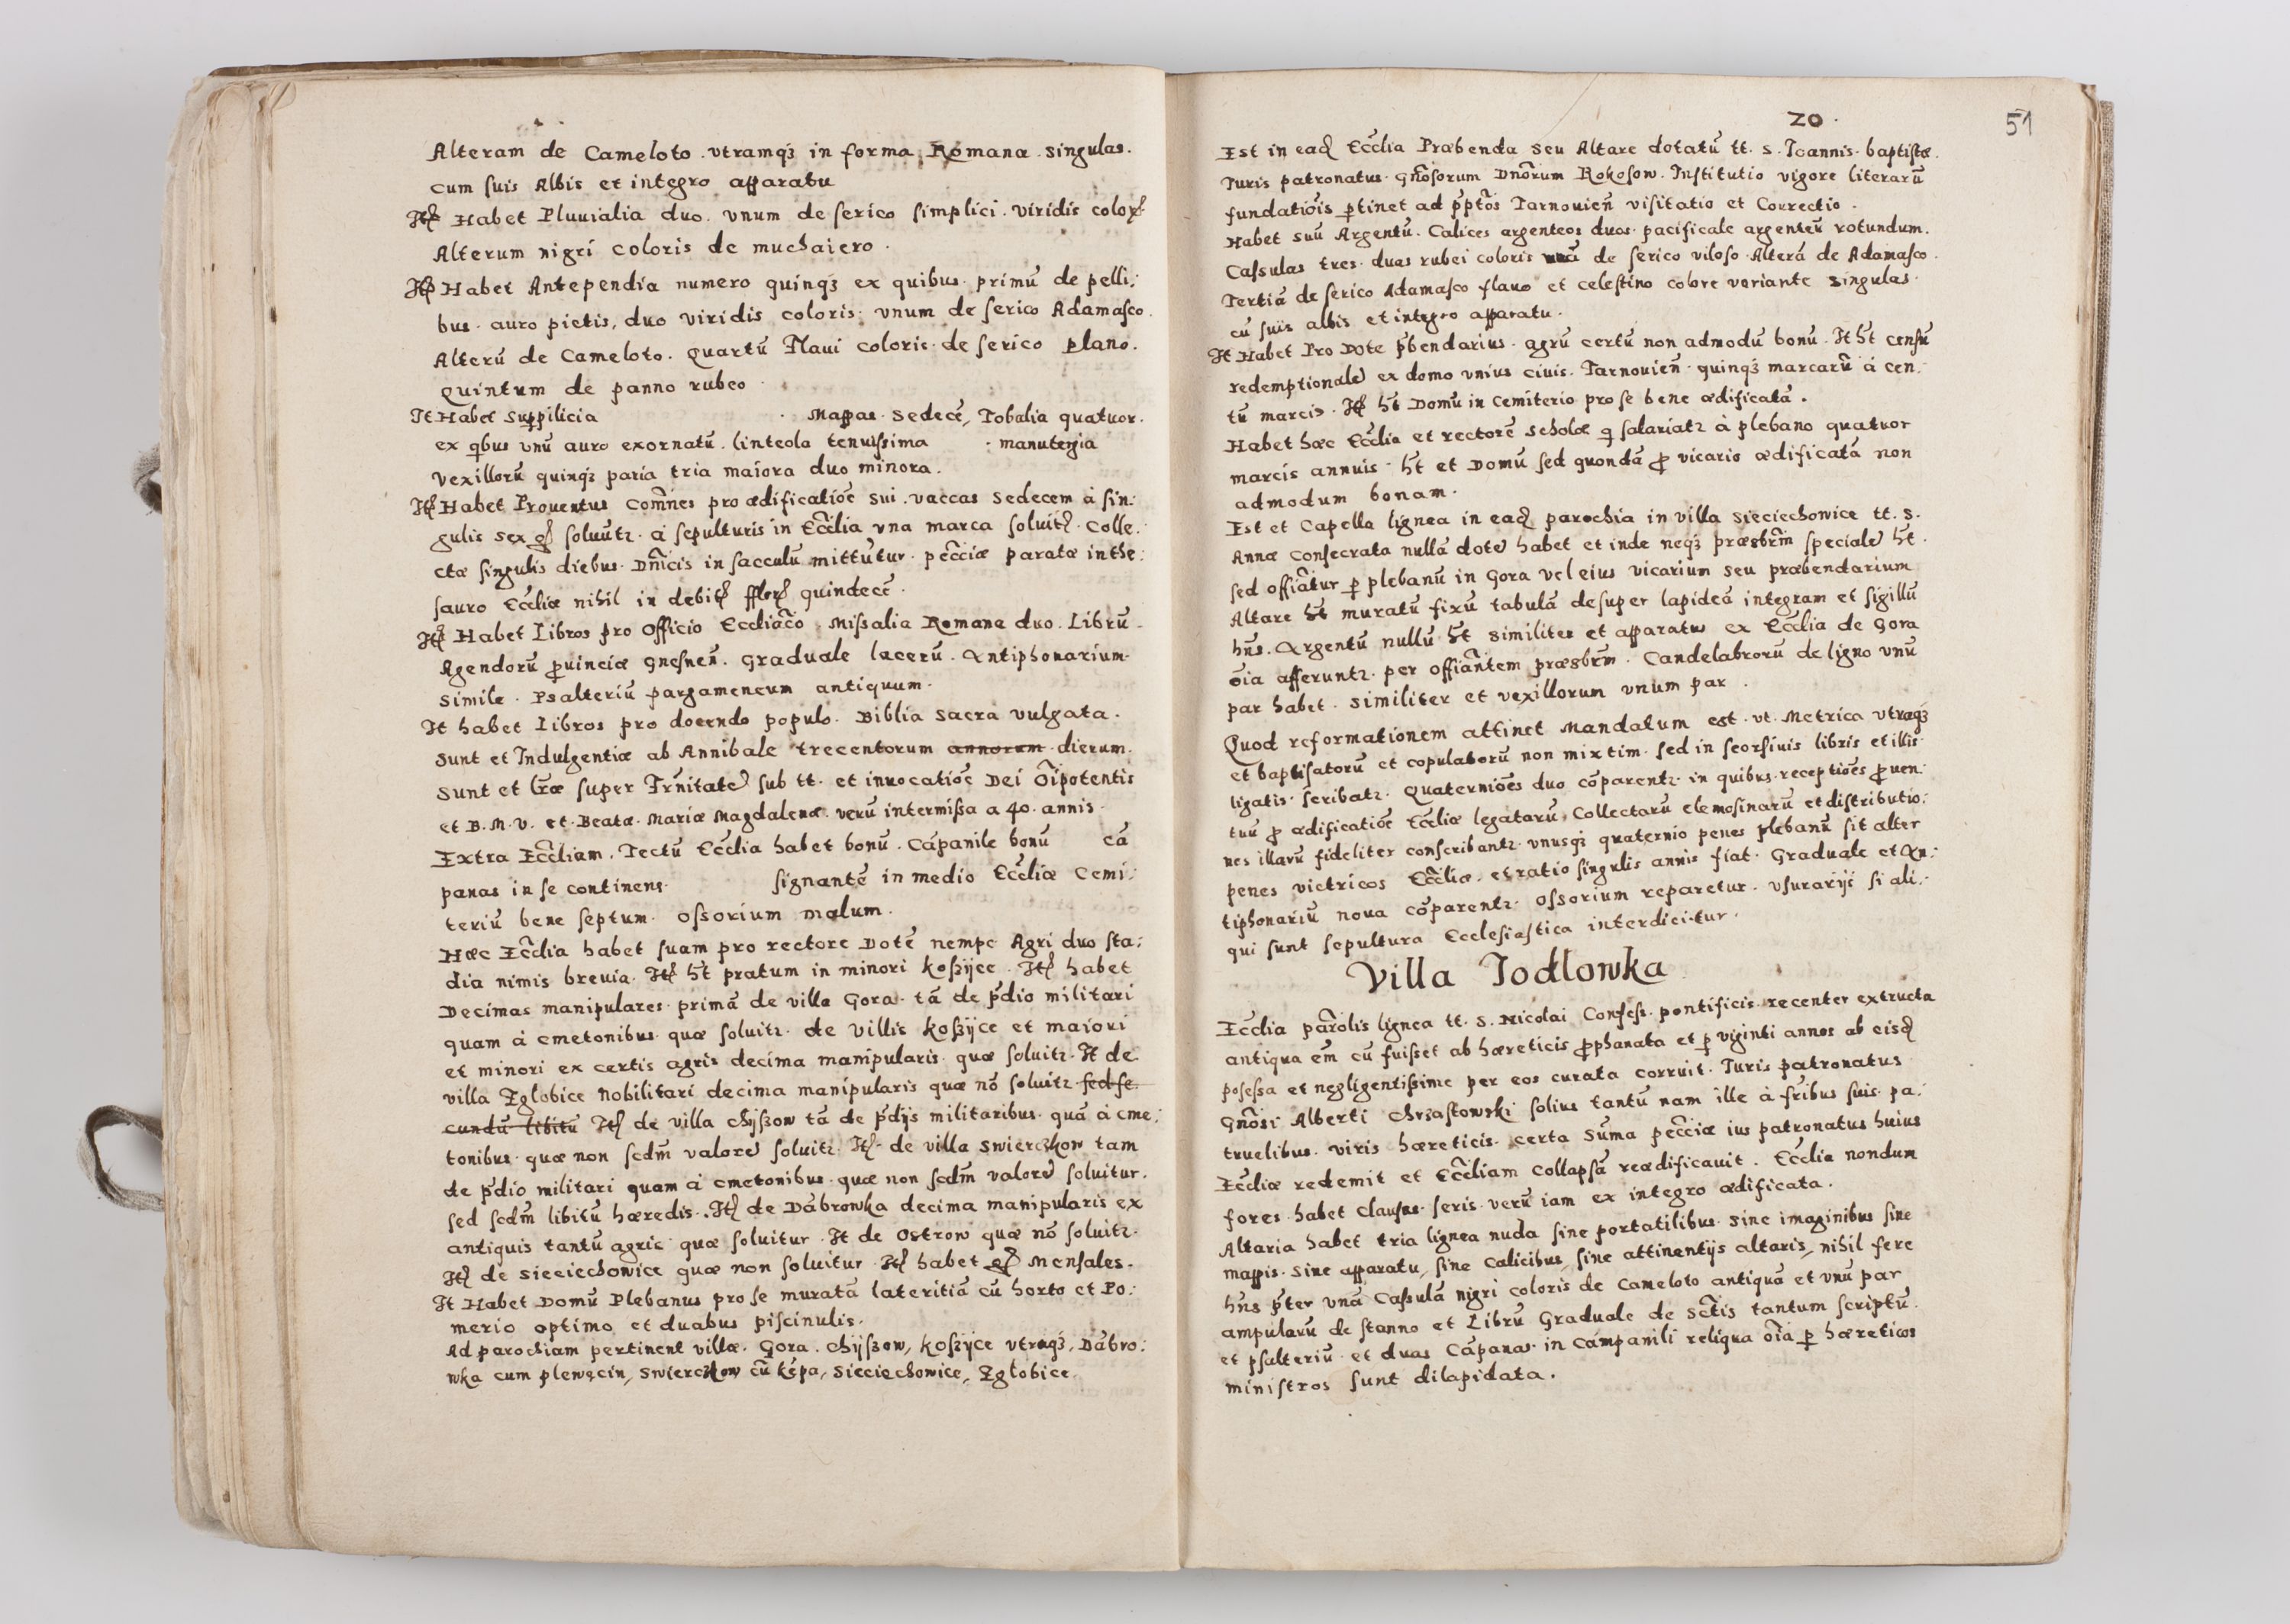 Alteram de Cameloto. vtramqʒ in forma Romana singulas.
cum suis Albis et integro apparatu
Itē Habet Pluuialia duo. vnum de serico simplici. viridis coloris
Alterum nigri coloris de muchaiero.
Itē Habet Antependia numero quinqʒ ex quibus primū de pelli:
bus. auro pictis, duo viridis coloris. vnum de serico Adamasco.
Alterū de Cameloto. Quartū flaui coloris. de serico plano.
Quintum de panno rubeo.
It Habet Suppilicia . Mappas. Sedecē, Tobalia quatuor.
ex qbus vnū auro exornatū. linteola tenuissima : manutergia
vexillorū quinqʒ paria tria maiora duo minora.
Itē Habet Prouentus Com̄nes pro ædificatiōe sui. vaccas Sedecem à sin:
gulis sex gſ soluūtz. à sepulturis in Eccl̄ia vna marca soluitʒ. Colle.
ctæ singulis diebus. Dn̄icis in sacculū mittūtur. pecc̄iæ paratæ in the:
sauro Eccl̄iæ nihil in debitʒ fflorʒ quindecē.
Itē Habet Libros pro Officio Eccl̄iac̄o. Missalia Romana duo. Librū
Agendorū ꝓuinciæ Gnesneñ. Graduale lacerū. Antiphonarium
simile. Psalteriū pargameneum antiquum.
It habet Libros pro docendo populo. Biblia Sacra vulgata.
Sunt et Indulgentiæ ab Annibale trecentorum annorum dierum.
Sunt et Lr̄æ super Fr̄nitatē sub tt. et inuocatiōe Dei Oīpotentis
et B. M. V. et. Beatæ. Mariæ Magdalenæ. verū intermissa a 40. annis.
Extra Eccl̄iam. Tectū Eccl̄ia habet bonū. Cāpanile bonū cā
panas in se continens. signantē in medio Eccl̄iæ Cemi:
teriū bene septum. Ossorium malum.
Hæc Eccl̄ia habet suam pro rectore Dotē nempe Agri duo sta:
dia nimis breuia. Itē ht̄ pratum in minori koszijce. Itē habet
Decimas manipulares. primā de villa Gora. tā de p̄dio militari
quam à cmetonibus. quæ soluitz. de villis koszijce et maiori
et minori ex certis agris decima manipularis. quæ soluitz. It de
villa Zglobice Nobilitari decima manipularis quæ nō soluitz sed se
cundū libitū Itē de villa chijszow tā de p̄dijs militaribus. quā à cme:
tonibus. quæ non scdm̄ valorē soluitz. Itē de villa Swierczkow tam
de p̄dio militari quam à cmetonibus. quæ non scdm̄ valorē soluitur.
sed scdm̄ libitū hæredis. Itē de Dąbrowka decima manipularis ex
antiquis tantū agris quæ soluitur. It de Ostrow quæ nō soluitz.
Itē de Sieciechowice quæ non soluitur Itē habet gſ Mensales.
It Habet Domū Plebanus pro se muratā lateritiā cū horto et Po:
merio optimo et duabus piscinulis.
Ad parochiam pertinent villæ. Gora. chijszow, koszijce vtraqʒ, Dąbro:
wka cum plewęcin, Swierczkow cū kępa, Sieciechowice, Zglobice.
20.
51
Est in eadʒ Eccl̄ia Præbenda Seu Altare dotatū tt. S. Ioannis. baptistæ.
Iuris patronatus. Gn̄osorum Dn̄orum Rokosow. Institutio vigore literarū
fundatiōis ꝑtinet ad p̄ptōs Tarnouień visitatio et Correctio.
Habet suū Argentū. Calices argenteos duos. pacificale argenteū rotundum.
Cassulas tres. duas rubei coloris vnā de serico viloso. Alterā de Adamasco.
Tertiā de serico Adamasco flauo et celestino colore variante Singulas.
cū suis albis et integro apparatu.
It Habet Pro Dote p̄bendarius. agrū certū non admodū bonū. It ht̄ censū
redemptionalē ex domo vnius ciuis. Tarnouień. quinqʒ marcarū à cen:
tū marcis. Itē ht̄ Domū in Cemiterio pro se bene ædificatā.
Habet hæc Eccl̄ia et rectorē scholæ q salariatz à plebano quatuor
marcis annuis. ht̄ et Domū sed quondā ꝓ vicario ædificatā non
admodum bonam.
Est et Capella lignea in eadʒ parochia in villa Sieciechowice tt. S.
Annæ Consecrata nullā dotē habet et inde neqʒ præsbr̄m specialē ht̄.
sed offiātur ꝑ plebanū in Gora vel eius vicarium seu præbendarium
Altare ht̄ muratū fixū tabulā desuper lapideā integram et sigillū
hn̄s. Argentū nullū ht̄ similiter et apparatus ex Eccl̄ia de Gora
oīa afferuntz. per offiāntem præsbr̄m. Candelabrorū de ligno vnū
par habet. similiter et vexillorum vnum par.
Quod reformationem attinet Mandatum est. vt. Metrica vtraqʒ
et baptisatorū et copulatorū non mixtim. sed in seorsiuis libris et illis
ligatis. scribatz. Quaterniōes duo cōparentz. in quibus. receptiōes ꝓuen:
tuū ꝓ ædificatiōe Eccl̄iæ legatarū, Collectarū elemosinarū et distributio:
nes illarū fideliter conscribantz. vnusqʒ quaternio penes plebanū sit alter
penes victricos Eccl̄iæ. et ratio singulis annis fiat. Graduale et An:
tiphonariū noua cōparentz. Ossorium reparetur. Vsurarijs si ali:
qui sunt sepultura Ecclesiastica interdicitur.
Villa Jodlowka
Eccl̄ia parōlis lignea tt. S. Nicolai Confess. pontificis. recenter extructa
antiqua em̄ cū fuisset ab hæreticis ꝓphanata et ꝑ viginti annos ab eisdʒ
posessa et negligentissime per eos curata corruit. Iuris patronatus
Gn̄osi Alberti chrzastowski solius tantū nam ille à fr̄ibus suis. pa:
truelibus. viris hæreticis. certa Sūma pecc̄iæ ius patronatus huius
Eccl̄iæ redemit et Eccl̄iam Collapsā reædificauit. Eccl̄ia nondum
fores habet Clausas. seris. verū iam ex integro ædificata.
Altaria habet tria lignea nuda sine portatilibus. sine imaginibus sine
mappis. sine apparatu, sine Calicibus, sine attinentijs altaris, nihil fere
hn̄s p̄ter vnā Cassulā nigri coloris de Cameloto antiquā et vnū par
ampularū de stanno et Librū Graduale de Sctīs tantum scriptū.
et psalteriū et duas Cāpanas. in Campanili reliqua oīa ꝑ hæreticos
ministros sunt dilapidata.